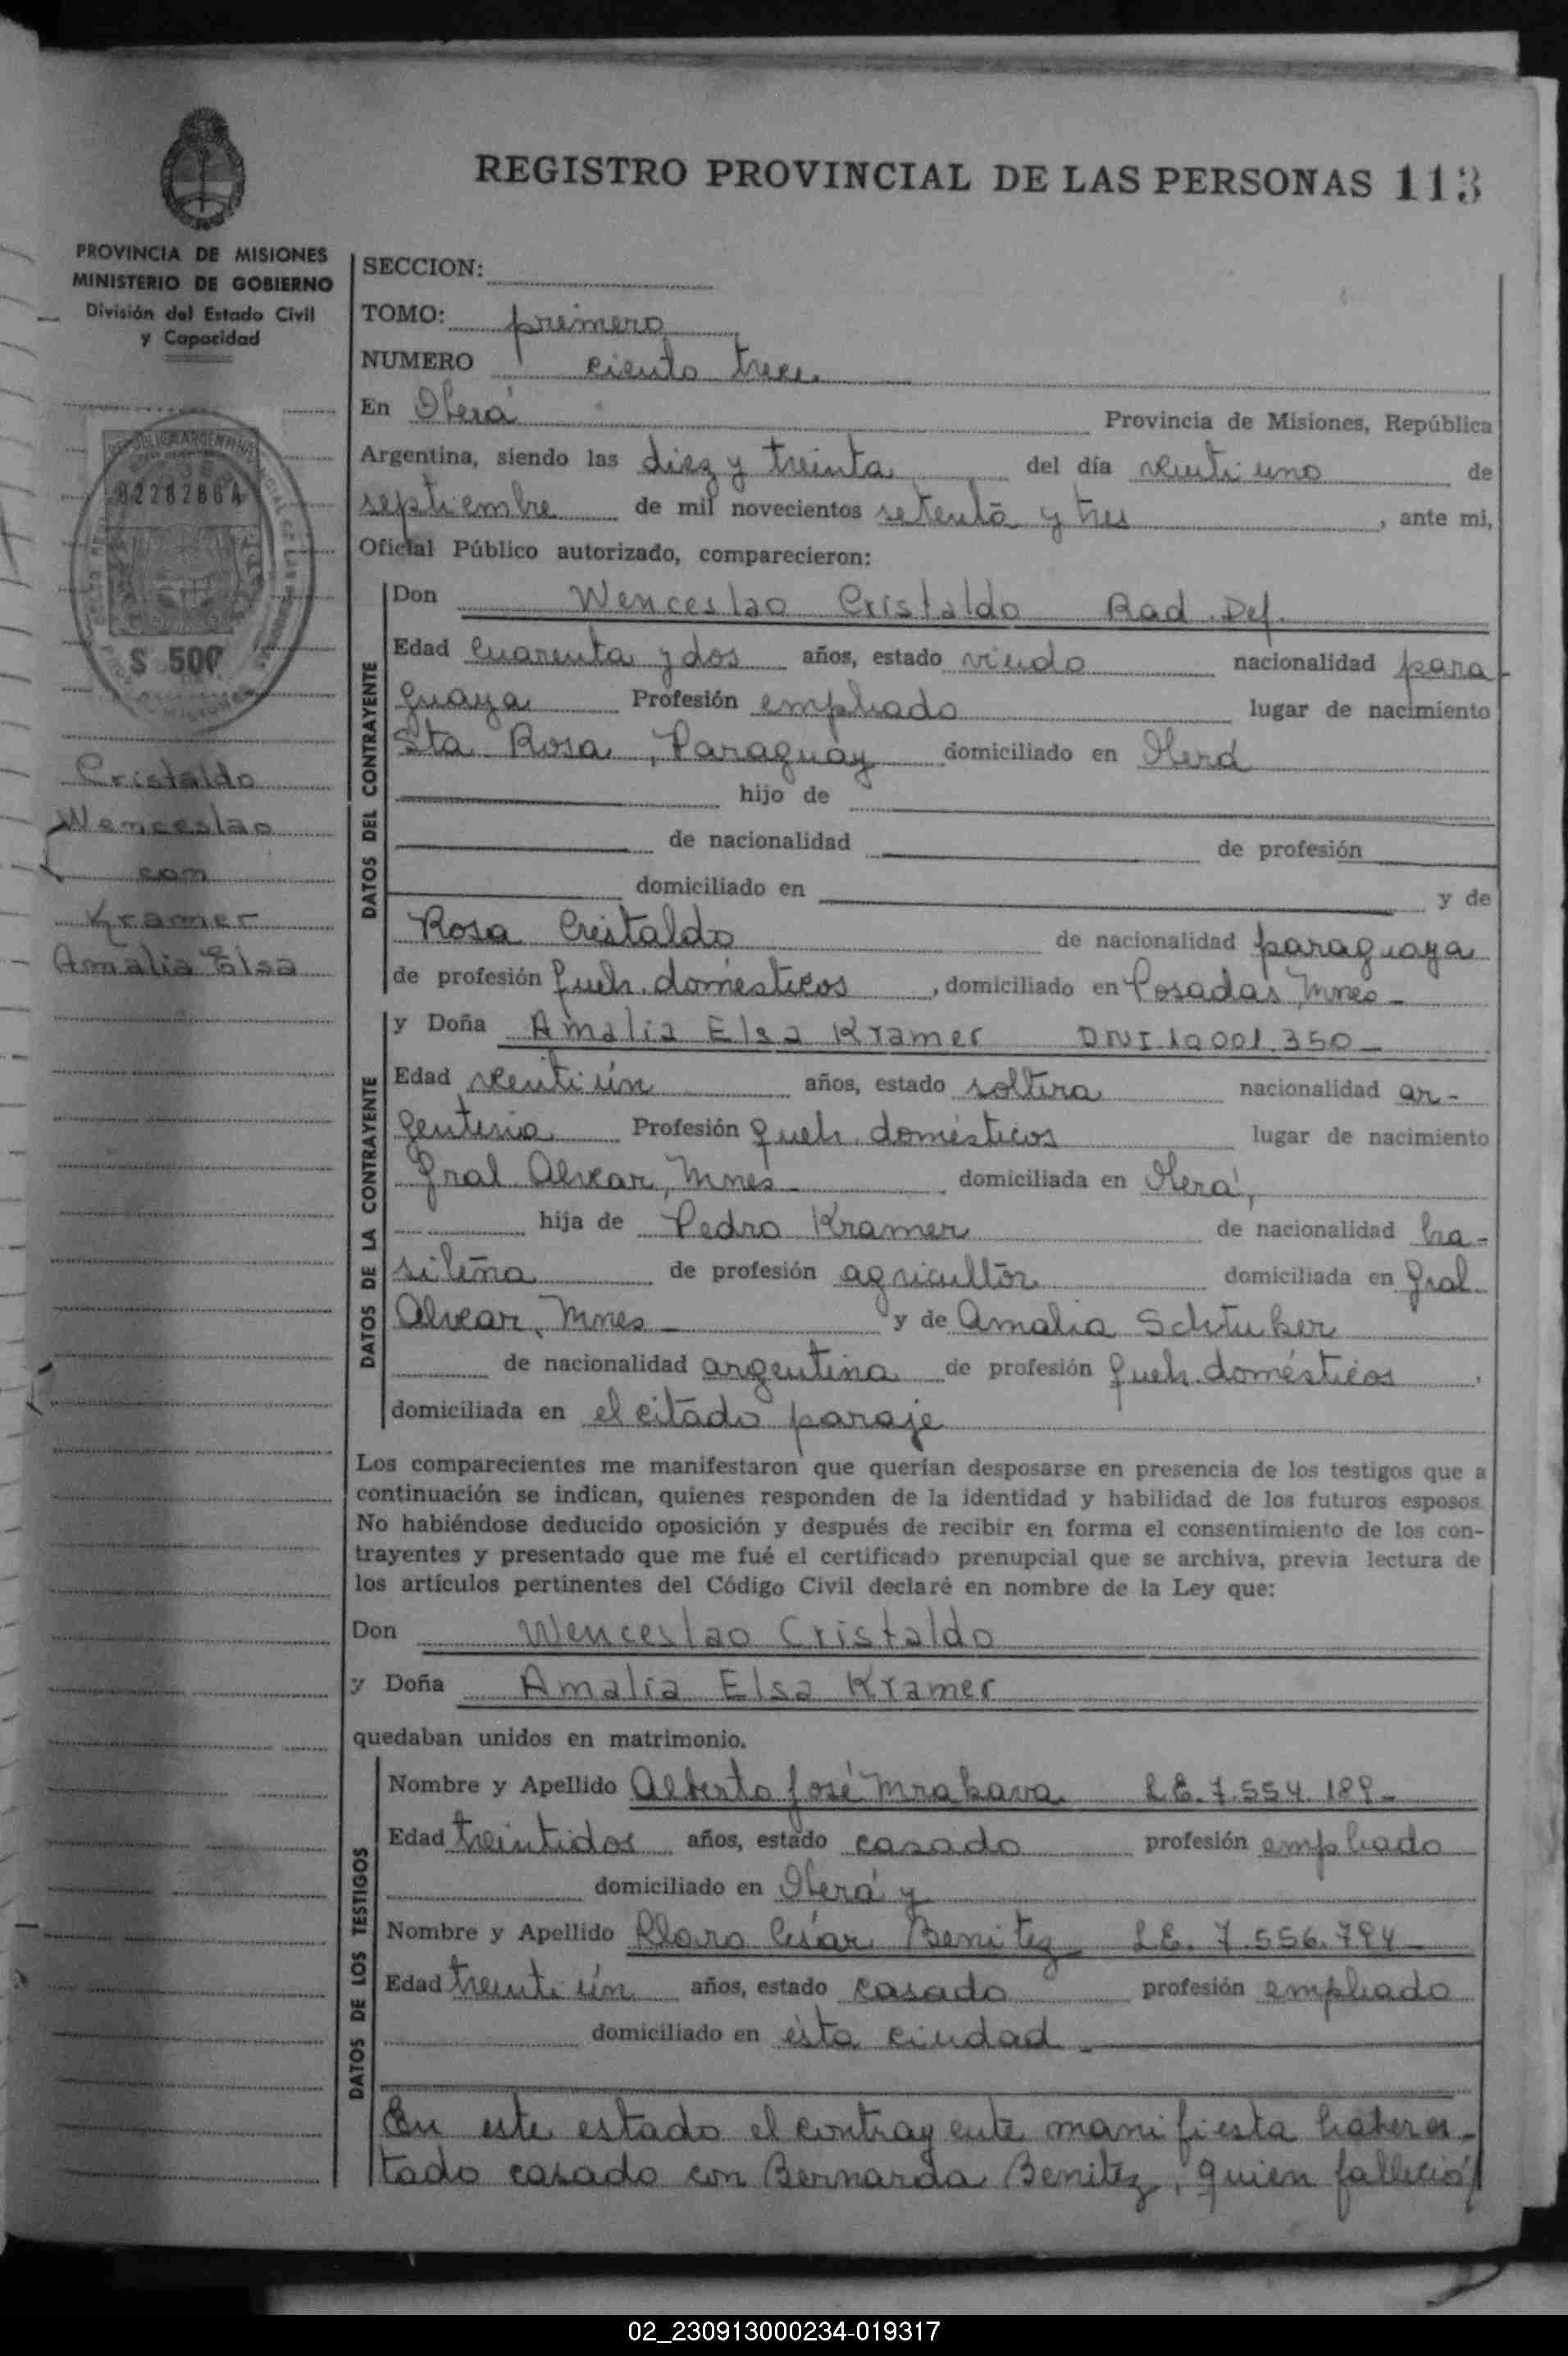 REGISTRO PROVINCIAL DE LAS PERSONAS 113
PROVINCIA DE MISIONES
MINISTERIO DE GOBIERNO
División del Estado Civil
y Capacidad
REPUBLICA ARGENTINA
$ 500
Cristaldo
Wenceslao
con
Kramer
Amalia Elsa
SECCION:
TOMO: primero
NUMERO ciento trece
En Oberá Provincia de Misiones, República
Argentina, siendo las diez y treinta del día veinti uno de
septiembre de mil novecientos setenta y tres, ante mi,
Oficial Público autorizado, comparecieron:
DATOS DEL CONTRAYENTE
Don Wenceslao Cristaldo Rad. Def.
Edad cuarenta y dos años, estado viudo nacionalidad para-
guaya Profesión empleado lugar de nacimiento
Sta Rosa, Paraguay domiciliado en Oberá
hijo de
de nacionalidad de profesión
domiciliado en y de
Rosa Cristaldo de nacionalidad paraguaya
de profesión queh. domésticos, domiciliado en Posadas, Mnes-
DATOS DE LA CONTRAYENTE
y Doña Amalia Elsa Kramer DNI 10 001.350-
Edad veinti ún años, estado soltera nacionalidad ar-
gentina Profesión queh. domésticos lugar de nacimiento
Gral. Alvear, Mnes- domiciliada en Oberá,
hija de Pedro Kramer de nacionalidad bra-
sileña de profesión agricultor domiciliada en Gral.
Alvear, Mnes- y de Amalia Schtuker
de nacionalidad argentina de profesión queh. domésticos,
domiciliada en el citado paraje
Los comparecientes me manifestaron que querían desposarse en presencia de los testigos que a
continuación se indican, quienes responden de la identidad y habilidad de los futuros esposos.
No habiéndose deducido oposición y después de recibir en forma el consentimiento de los con-
trayentes y presentado que me fué el certificado prenupcial que se archiva, previa lectura de
los artículos pertinentes del Código Civil declaré en nombre de la Ley que:
Don Wenceslao Cristaldo
y Doña Amalia Elsa Kramer
quedaban unidos en matrimonio.
DATOS DE LOS TESTIGOS
Nombre y Apellido Alberto José Mrakava L.E. 7.554.189-
Edad treintidos años, estado casado profesión empleado
domiciliado en Oberá y
Nombre y Apellido César Benitez L.E. 7.556.794-
Edad treinti ún años, estado casado profesión empleado
domiciliado en ésta ciudad.
En este estado el contrayente manifiesta haber es-
tado casado con Bernarda Benitez, quien falleció
02_230913000234-019317